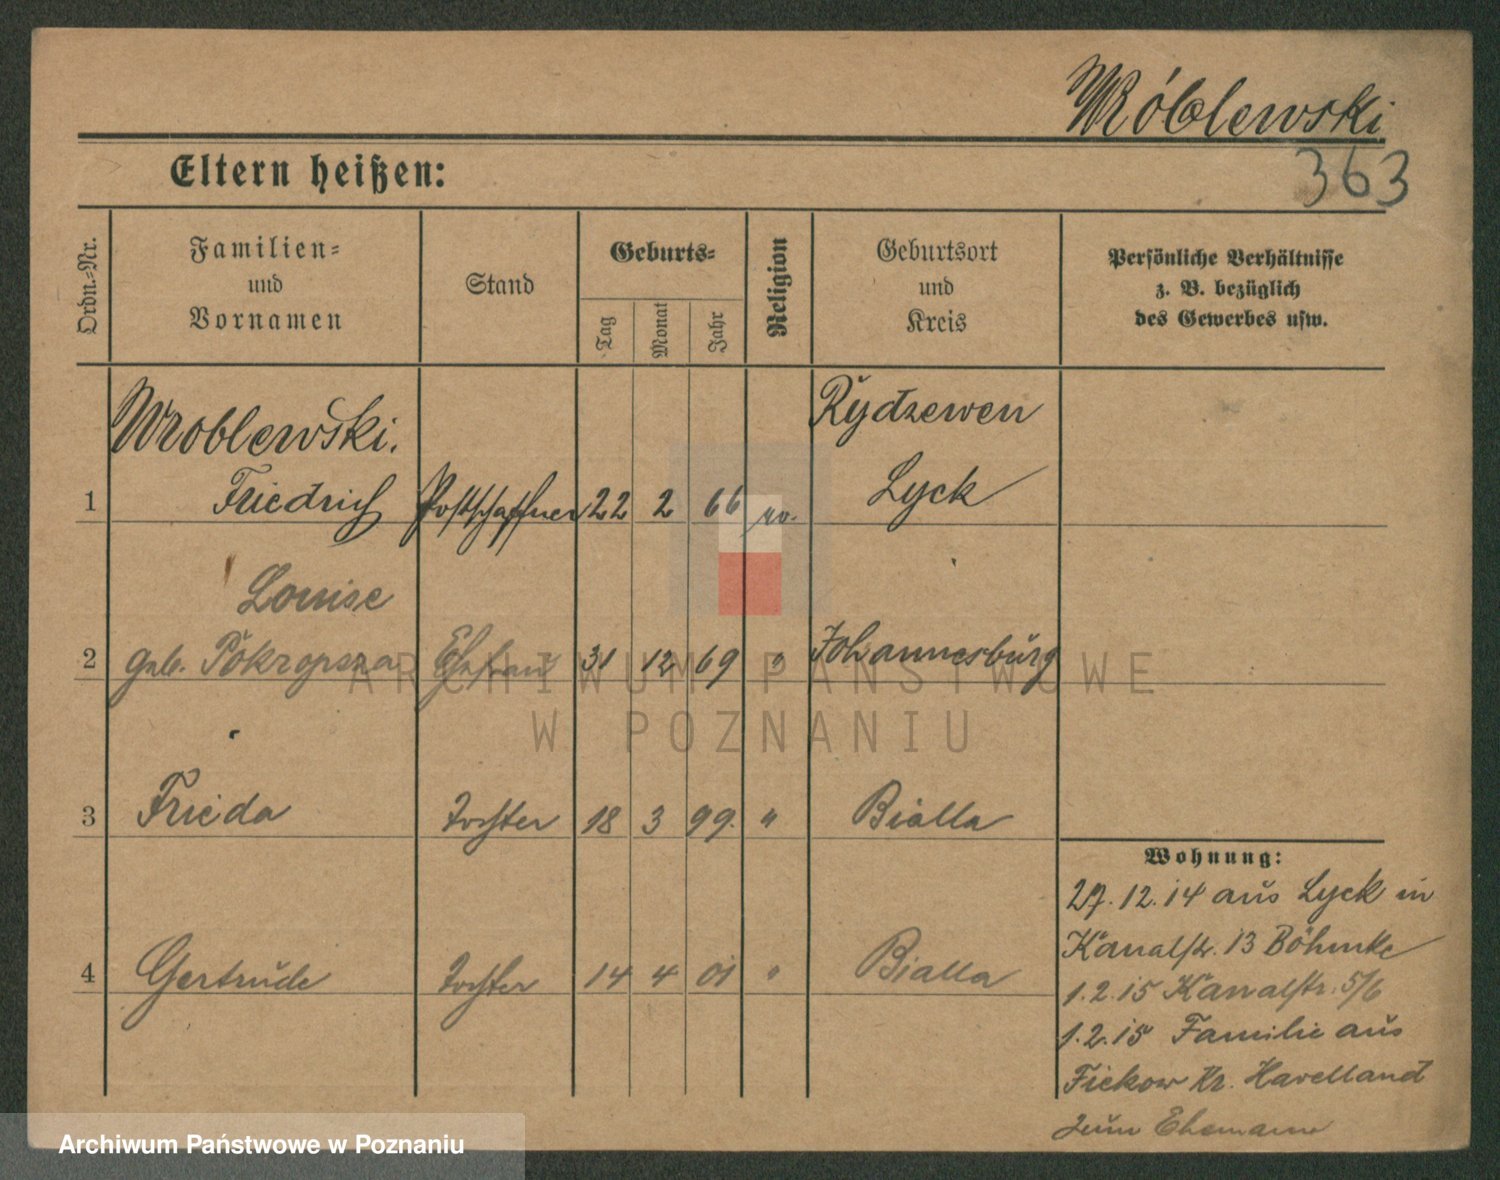 Wróblewski
363
Eltern heißen:
Ordn.-Nr.
Familien-
und
Vornamen
Stand
Geburts-
Tag
Monat
Jahr
Religion
Geburtsort
und
Kreis
Persönliche Verhältnisse
z. B. bezüglich
des Gewerbes usw.
Wroblewski.
Rydzewen
1 Friedrich Postschaffner 22 2 66 ev. Lyck
Louise
2 geb. Pokropsza Ehefrau 31 12 69 " Johannesburg
3 Frieda Tochter 18 3 99. " Bialla
4 Gertrude Tochter 14 4 01 " Bialla
Wohnung:
27.12.14 aus Lyck in
Kanalstr. 13 Böhmke
1.2.15 Kanalstr. 5/6
1.2.15 Familie aus
Kr. Havelland
zum Ehemann
ARCHIWUM PAŃSTWOWE
W POZNANIU
Archiwum Państwowe w Poznaniu